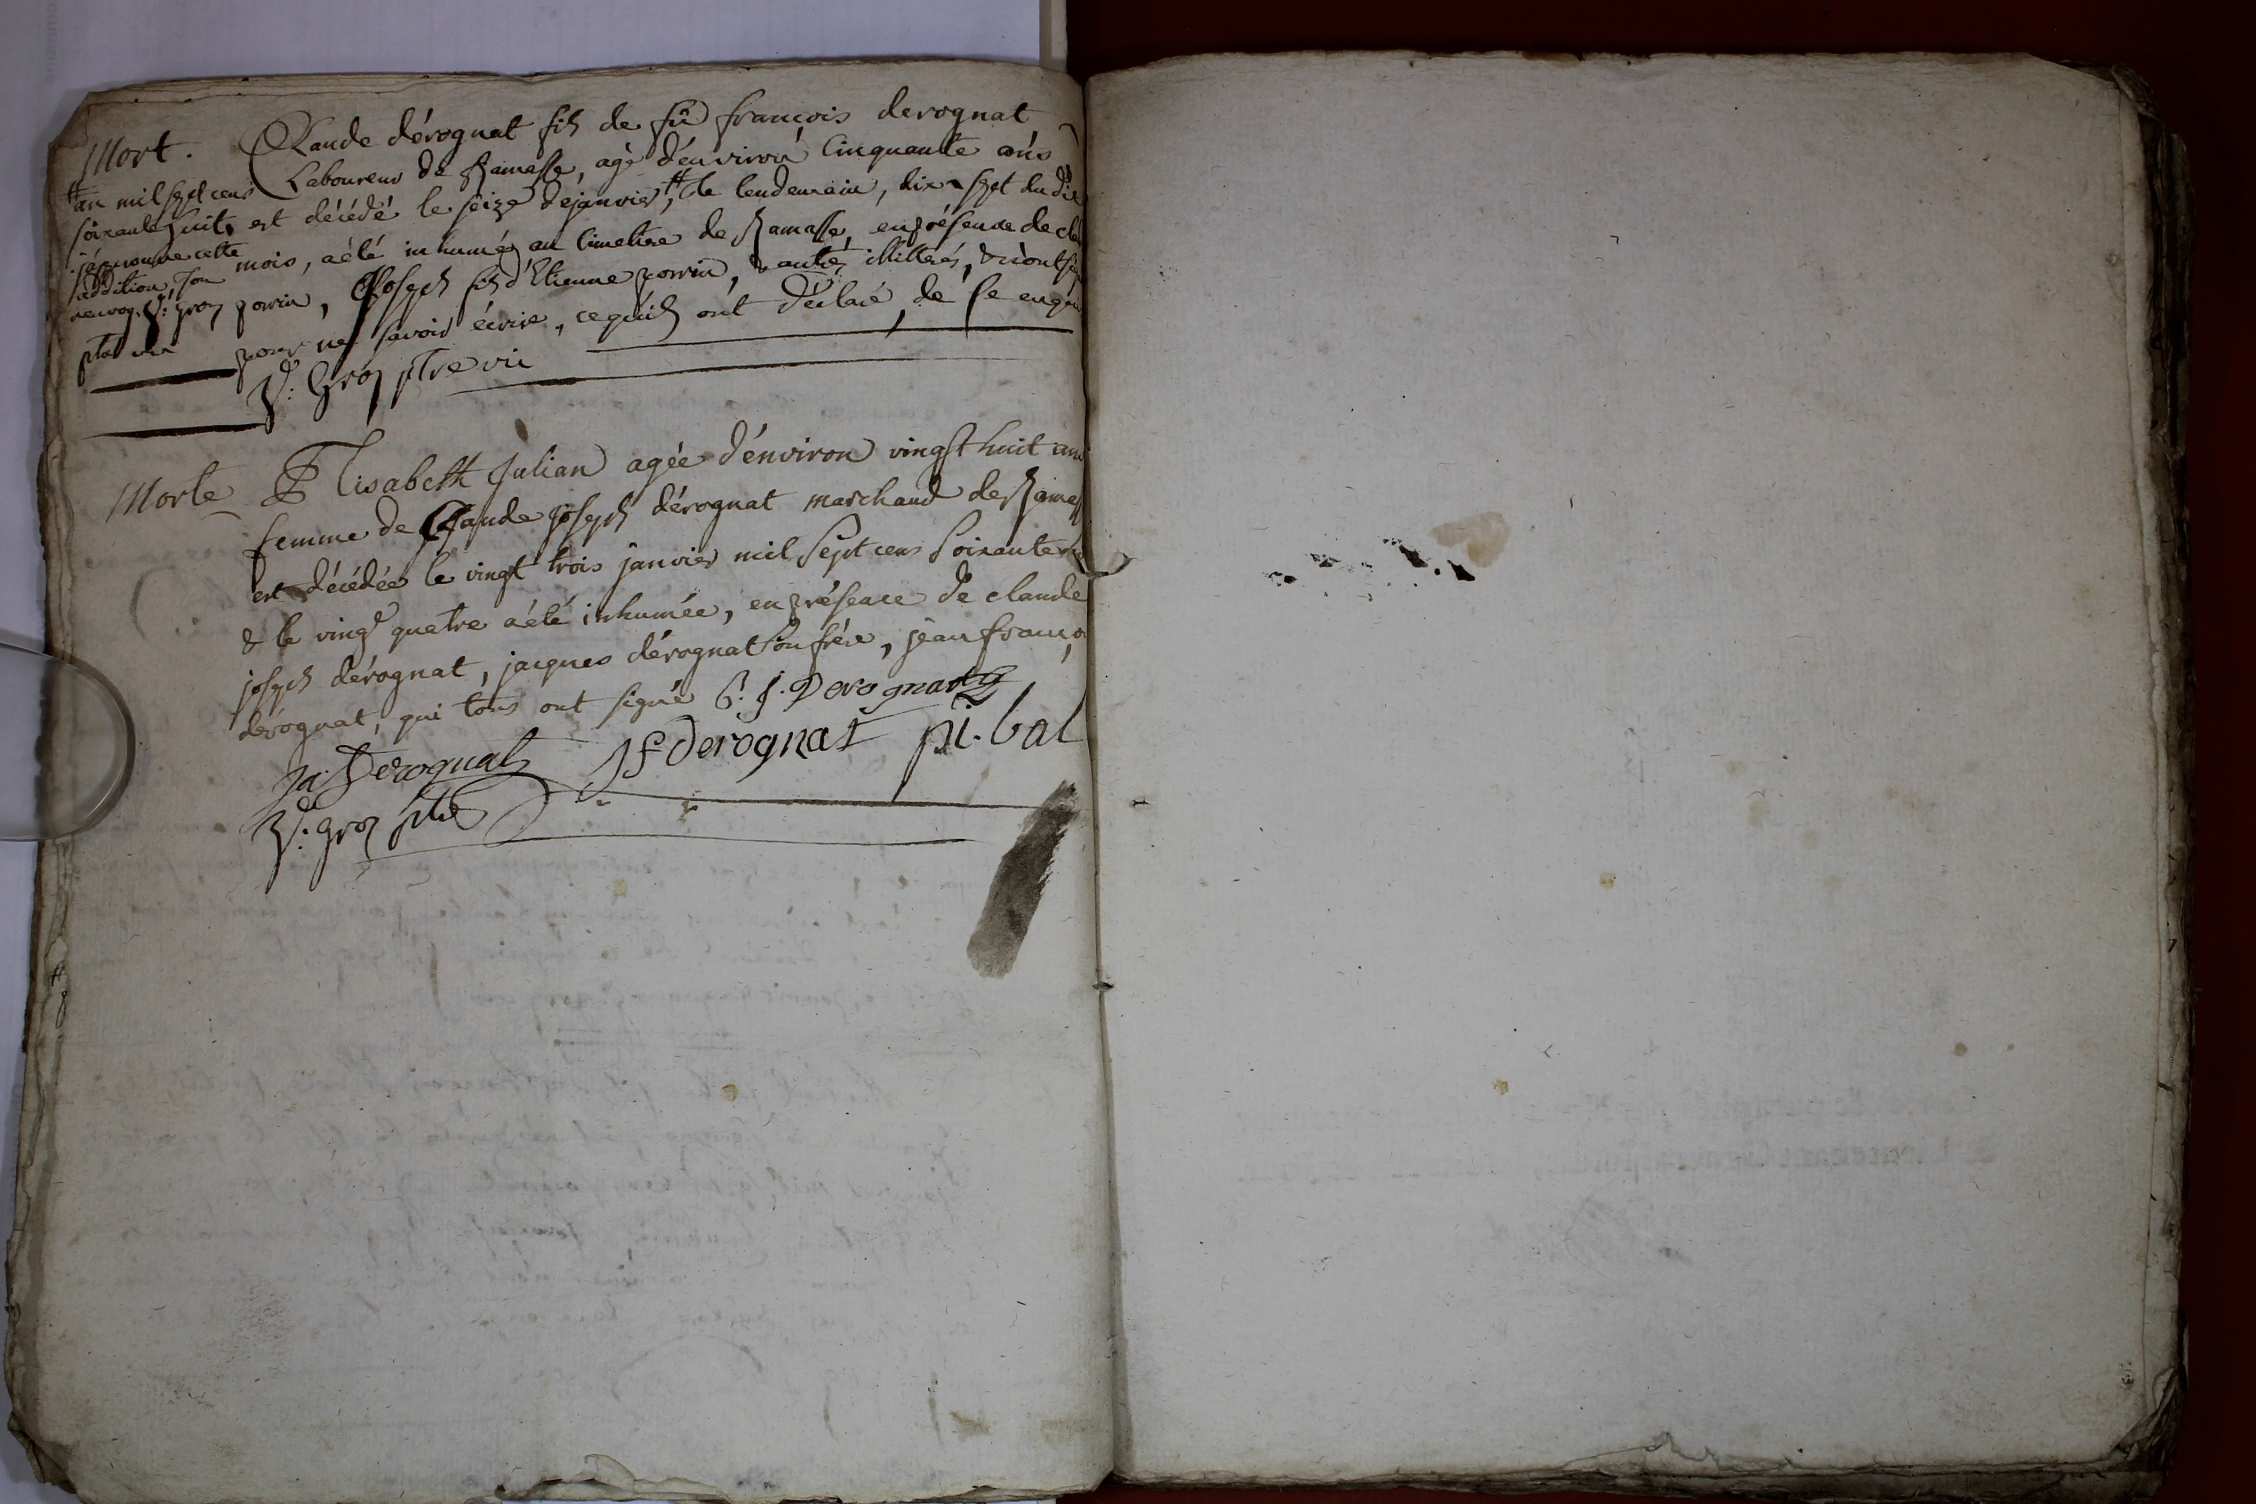 Mort. Claude dérognat fils de fû françois derognat
Laboureur de Ramasse, agé d'environ Cinquante ans
est décédé le seize de janvier, # le lendemain, dix sept du dit
mois, a été inhumé au Cimetiere de Ramasse, en présence de
perrin, Joseph fils d'Etienne perrin, & autres illitterés, & n'ont
pour ne savoir écrire, ce qu'ils ont déclaré, de ce enquis
# an mil sept cens
soixante huit,
j'épprouve cette
addition,
P. Groz
ptre vic
P. Groz ptre vic
Morte Elisabeth Julian agée d'environ vingt huit ans
femme de Claude joseph dérognat marchand de Ramasse
est décédée le vingt trois janvier mil Sept cens Soixante
& le vingt quatre a été inhumée, en présence de claude
joseph dérognat, jacques dérognat Son frére, jean françois
dérognat, qui tous ont signé C. j. Derognat
ja. Derognat JF derognat pi. bal
P. groz ptre